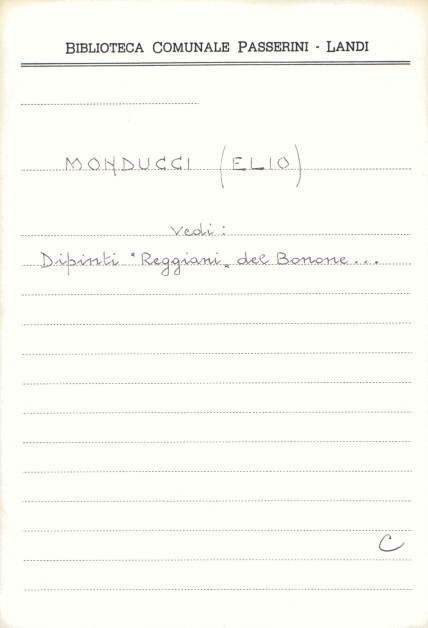 BIBLIOTECA COMUNALE PASSERINI - LANDI
MONDUCCI (ELIO)
Vedi:
Dipinti "Reggiani" del Bonone...
C